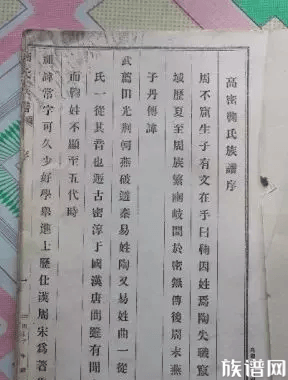 高密鞠氏族譜序
周不窟生子有文在手曰鞠因姓焉陶失職竄
域歷夏至周族繁豳岐開於密鏃傳後周末燕
子丹傳諱
武薦田光荆軻燕破遼秦易姓陶又易姓曲一從
氏一從其音也遊古密淳于國漢唐間雖有聞
而鞠姓不顯至五代時
諱常字可久少好學舉進上歷仕漢周宋爲著
族谱网